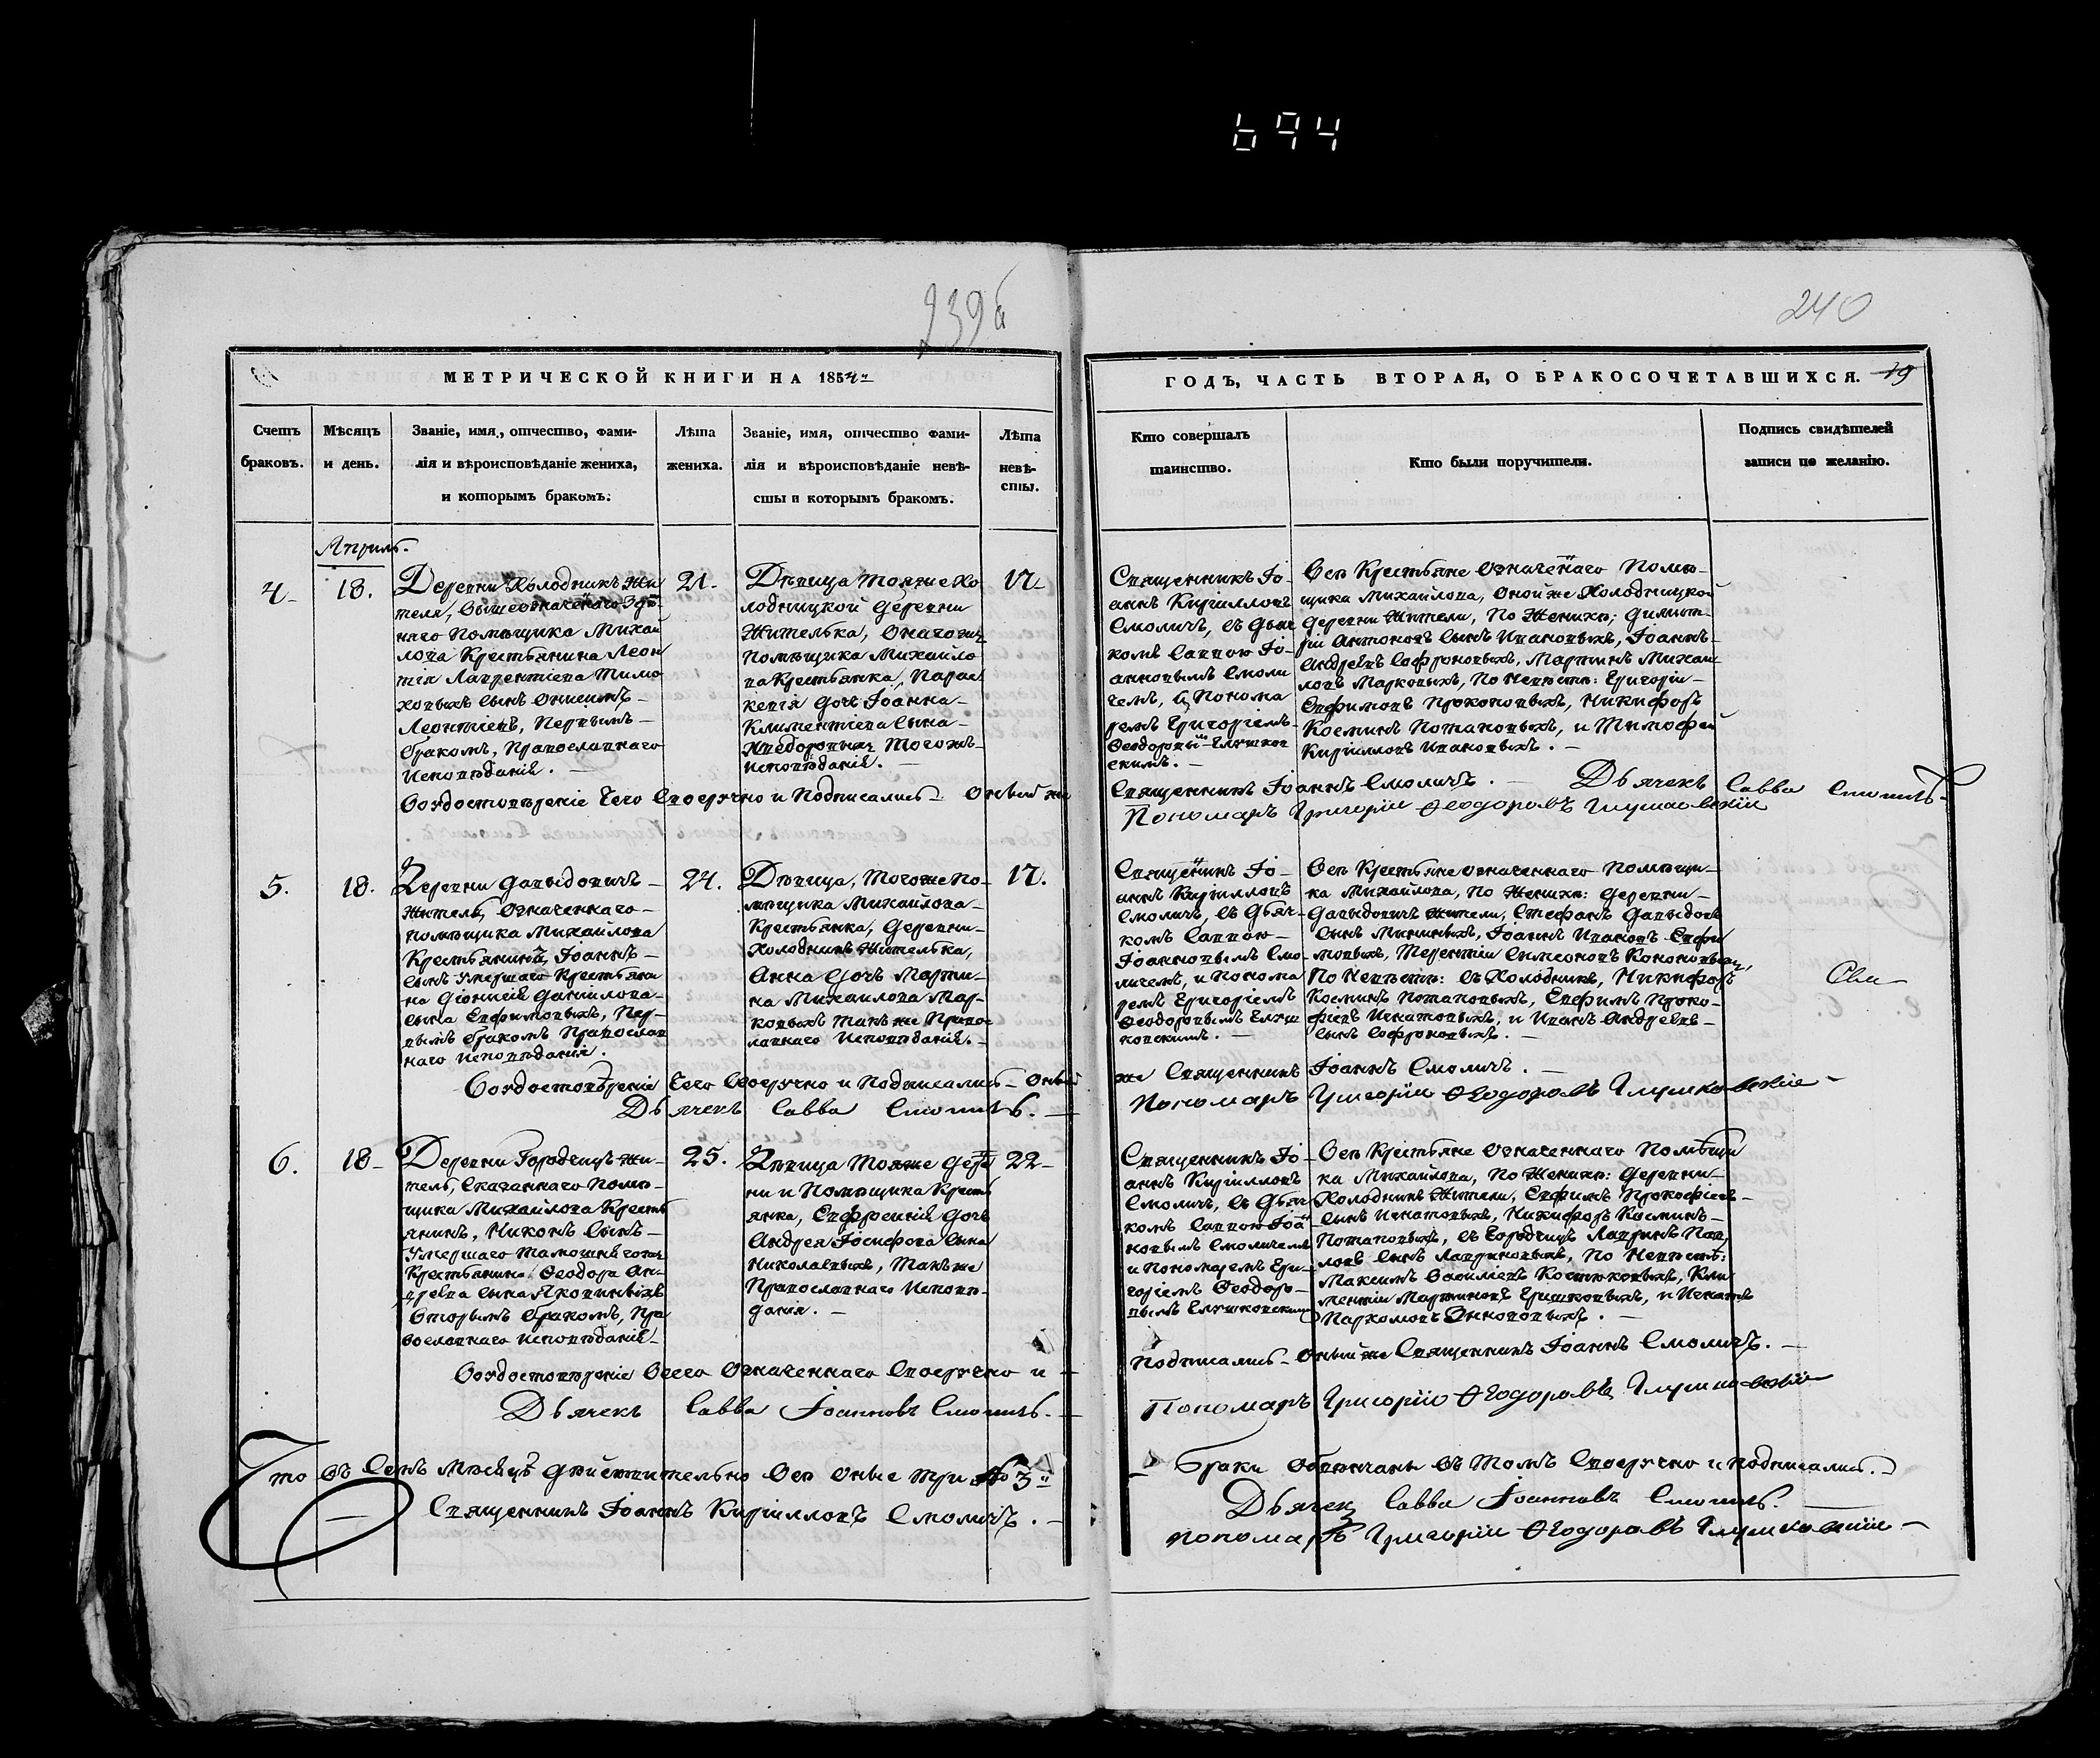 694
239б
240
МЕТРИЧЕСКОЙ КНИГИ НА 1854
ГОДЪ, ЧАСТЬ ВТОРАЯ, О БРАКОСОЧЕТАВШИХСЯ. 19
Счетъ
браковъ.
Мѣсяцъ
и день.
Званіе, имя, отчество, фами-
лія и вѣроисповѣданіе жениха,
и которымъ бракомъ.
Лѣта
жениха.
Званіе, имя, отчество фами-
лія и вѣроисповѣданіе невѣ-
сты и которымъ бракомъ.
Лѣта
невѣ-
сты.
Кто совершалъ
таинство.
Кто были поручители.
Подпись свидѣтелей
записи по желанію.
Апрѣль.
4
18.
Деревни Холодникъ жи
теля, вышеозначеннаго
помѣщика Михай
лова Крестьянина Леон
тія Лаврентіева Тимо
ховыхъ сынъ Онисимъ
Леонтіевъ, Первымъ
бракомъ, Православнаго
исповѣданія.
21.
Дѣвица тояже Хо
лодницкой деревни
жителька, онагоже
помѣщика Михайло
ва крестьянка, Парас
кевія дочь Іоанна
Климентіева сына
Тогожъ
исповѣданія.
17
Священникъ Іо-
аннъ Кирилловъ
Смоличъ, съ дьяч
комъ Саввою Іо-
анновымъ Смоли
чемъ, и Понома
ремъ Григоріемъ
Феодоровы Глушков
скимъ.
Всѣ Крестьяне означеннаго Помѣ-
щика Михайлова, оной же Холодницкой
деревни жители, По Женихѣ: Димит-
рій Антоновъ сынъ Ивановыхъ, Іоаннъ
Андреевъ Софроновыхъ, Мартинъ Михаи
ловъ Марковыхъ, По Невѣстѣ: Григорій
Евфимовъ Прокоповыхъ, Никифоръ
Косминъ Потаповыхъ, и Тимофей
Кирилловъ Ивановыхъ.
Въ удостовѣреніе чего Своеручно и Подписались Оный же
Священникъ Іоаннъ Смоличъ. Дьячекъ Савва Смоличъ
Пономаръ Григорій Феодоровъ Глушковскій
5.
18.
Деревни Давыдовичъ
житель, означеннаго
помѣщика Михайлова
Крестьянинъ, Іоаннъ
сынъ умершаго Крестьяни
на Діонисія Даниилова
сына Евфимовыхъ, Пер-
вымъ бракомъ Православ
наго исповѣданія.
24.
Дѣвица, тогоже по-
мѣщика Михайлова
Крестьянка, деревни
Холодникъ жителька,
Анна дочь Марти-
на Михайлова Мар-
ковыхъ такъ же Право
славнаго исповѣданія.
17.
Священникъ Іо-
аннъ Кирилловъ
Смоличъ, съ дьяч-
комъ Саввою
Іоанновымъ Смо
личемъ, и понома
ремъ Григоріемъ
Феодоровымъ Глуш
ковскимъ.
Всѣ Крестьяне означеннаго помѣщи-
ка Михайлова, по женихѣ: деревни
Давыдовичъ жители, Стефанъ Давыдовъ
сынъ Мининыхъ, Іоаннъ Ивановъ Евфи
мовыхъ, Терентій Симеоновъ
По Невѣстѣ: съ Холодникъ, Никифоръ
Косминъ Потаповыхъ, Евфимъ Проко-
фіевъ Игнатовыхъ, и Иванъ Андреевъ
сынъ Софроновыхъ.
Сви
Въ удостовѣреніе чего Своеручно и Подписались Оный
же Священникъ Іоаннъ Смоличъ.
Дьячекъ Савва Смоличъ.
Пономаръ Григорій Феодоровъ Глушковскій
6.
18
Деревни Городчицъ жи-
тель, сказаннаго помѣ-
щика Михайлова Кресть
янинъ, Никонъ сынъ
умершаго
Крестьянина Феодора Ан-
дреева сына Яковинныхъ
Вторымъ бракомъ, Пра
вославнаго исповѣданія
25.
Дѣвица тояже дерев
ни и Помѣщика Кресть
янка, Евфросинія дочь
Андрея Іосифова сына
Николаевыхъ, такъ же
Православнаго исповѣ-
данія.
22
Священникъ Іо-
аннъ Кирилловъ
Смоличъ, съ дьяч
комъ Саввою Іоан
новымъ Смоличемъ
и пономаремъ Гри-
горіемъ Феодоро-
вымъ Глушковскимъ
Всѣ Крестьяне означеннаго Помѣщи
ка Михайлова, по женихѣ: деревни
Холодникъ жители, Евфимъ Прокофіевъ
сынъ Игнатовыхъ, Никифоръ Косминъ
Потаповыхъ, съ Городчицъ Лавринъ Пав
ловъ сынъ Лавриновыхъ, По Невѣстѣ:
Максимъ Василіевъ Костюковыхъ, Кли
ментій Мартиновъ Гришковыхъ, и Игнатъ
Пархомовъ
Въ удостовѣреніе Всего Означеннаго Своеручно и
Подписались Оный же Священникъ Іоаннъ Смоличъ.
Дьячекъ Савва Іоанновъ Смоличъ.
Пономаръ Григорій Феодоровъ Глушковскій
Что въ семъ мѣсяцѣ дѣйствительно всѣ оные три 3
браки обвѣнчаны въ томъ Своеручно и подписались.
Священникъ Іоаннъ Кирилловъ Смоличъ.
Дьячекъ Савва Іоанновъ Смоличъ.
пономаръ Григорій Феодоровъ Глушковскій